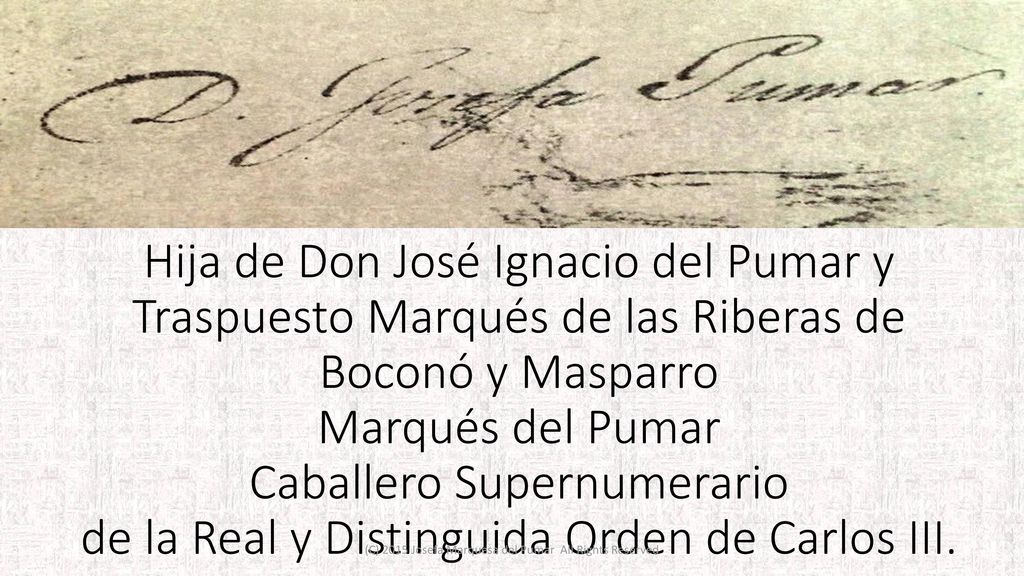 D. Josefa Pumar
Hija de Don José Ignacio del Pumar y
Traspuesto Marqués de las Riberas de
Boconó y Masparro
Marqués del Pumar
Caballero Supernumerario
de la Real y Distinguida Orden de Carlos III.
(C) 2019 Josefa Marquesa del Pumar All Rights Reserved